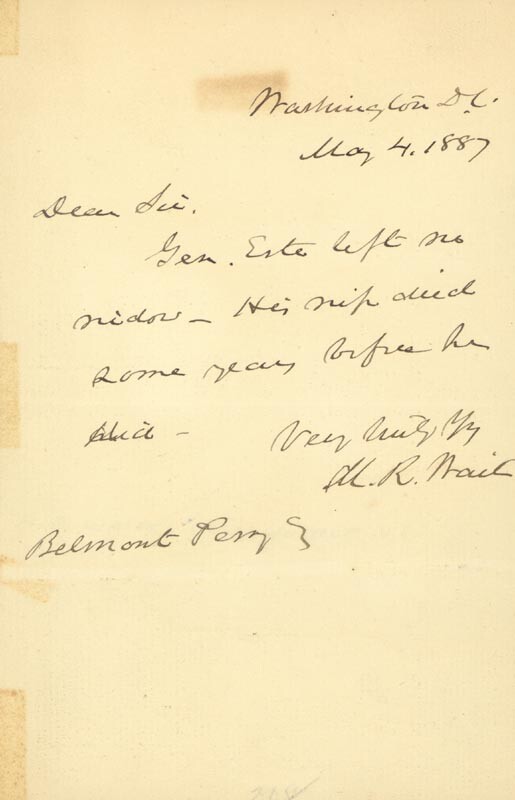 Washington D.C.
May 4. 1887
Dear Sir.
Gen. Este left no
widow – His wife died
some years before he
died –
Very truly Yrs
M. R. Waite
Belmont Perry Esq